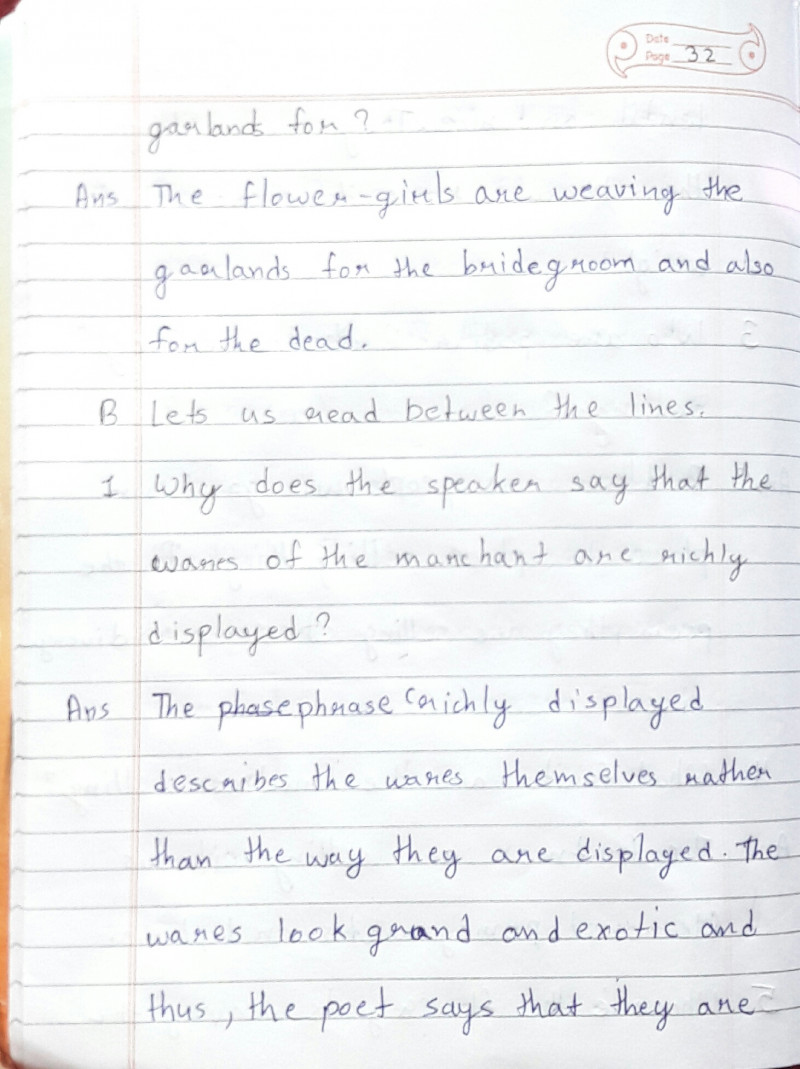 Date
Page 32
garlands for?
Ans The flower-girls are weaving the
garlands for the bridegroom and also
for the dead.
B Lets us read between the lines.
1 Why does the speaker say that the
wares of the marchant are richly
displayed?
Ans The phase phrase (richly displayed
describes the wares themselves rather
than the way they are displayed. The
wares look grand and exotic and
thus, the poet says that they are